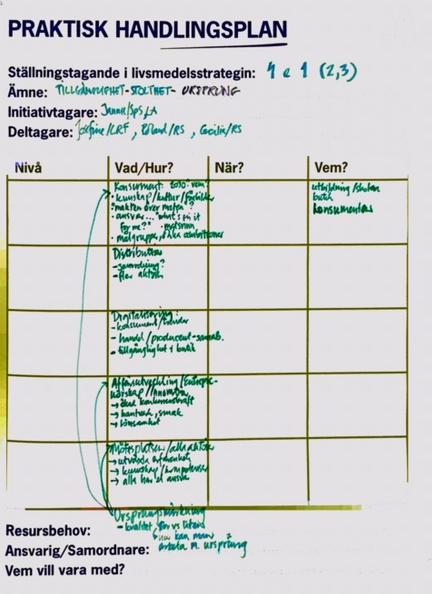 PRAKTISK HANDLINGSPLAN
Ställningstagande i livsmedelsstrategin: 4 e 1 (2,3)
Ämne: TILLGÄNGLIGHET-STOLTHET- URSPRUNG
Initiativtagare: /SPS,
Deltagare: Josefine/LRF, /RS, Cecilia/RS
Nivå Vad/Hur? När? Vem?
Konsument: 2030 vem?
- kunskap/kultur/förebilder
- makten över maten?
- ansvar... "what's in it
for me?" -
- målgrupper, olika
utbildning/skolan
butik
konsumenter
Distribution
- samordning?
- fler aktörer
Digitalisering:
- konsument/
- handel/producent-samarb.
- tillgänglighet i butik
Affärsutveckling/Entrepre-
nörskap/Innovation
→ ökad konkurrenskraft
→ hantverk, smak
→ lönsamhet
Mötesplatser/alla aktörer
→ utveckla
→ kunskap/kompetenser
→ alla har ett ansvar
Ursprungsmärkning
- kvalitet,
hur kan man
arbeta m. ursprung
Resursbehov:
Ansvarig/Samordnare:
Vem vill vara med?